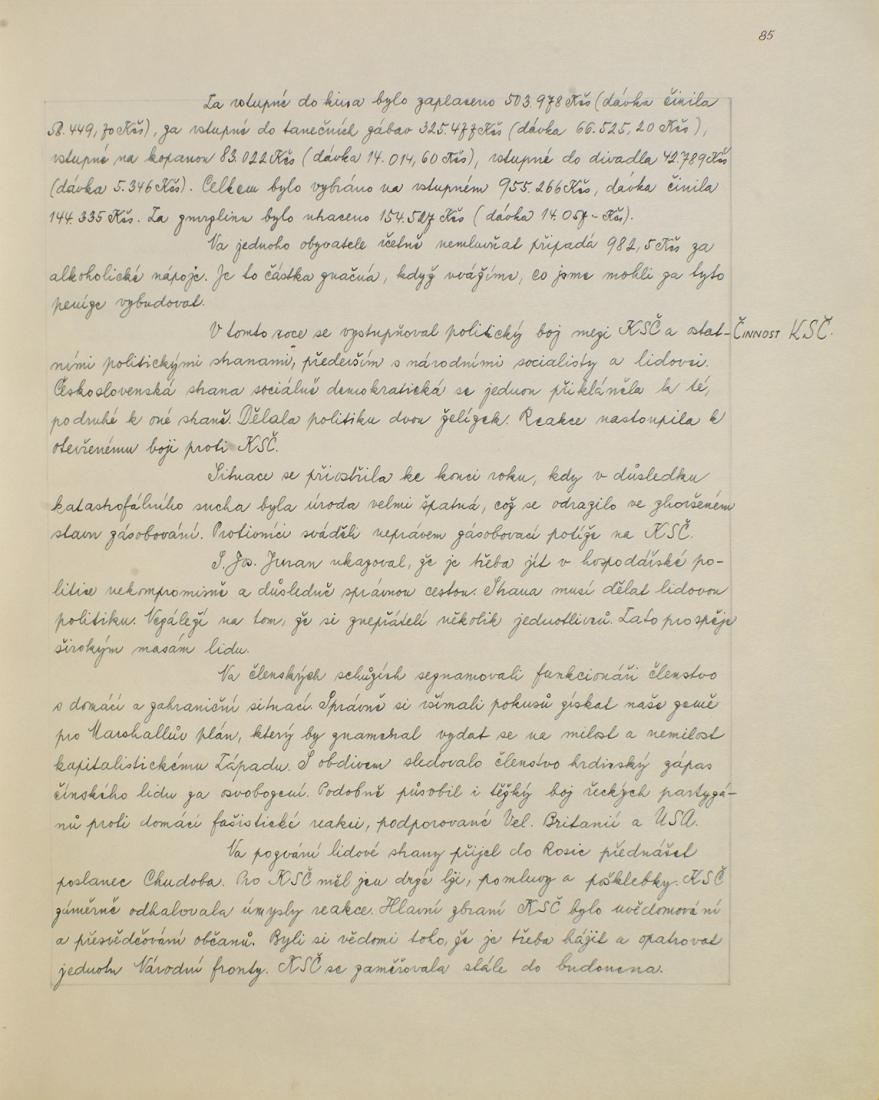 85
Za vstupné do kina bylo zaplaceno 503.978 Kčs (dávka činila
58.449,70 Kčs), za vstupné do tanečních zábav 325.477 Kčs (dávka 66.525,20 Kčs),
vstupné na kopanou 83.022 Kčs (dávka 14.014,60 Kčs), vstupné do divadla 42.789 Kčs
(dávka 5.346 Kčs). Celkem bylo vybráno na vstupném 955.266 Kčs, dávka činila
144.335 Kčs. Za zmrzlinu bylo utraceno 154.527 Kčs (dávka 14.057 - Kčs).
Na jednoho obyvatele včetně nemluvňat připadá 982,5 Kčs za
alkoholické nápoje. Je to částka značná, když uvážíme, co jsme mohli za tyto
peníze vybudovat.
V tomto roce se vystupňoval politický boj mezi KSČ a ostat- Činnost KSČ.
ními politickými stranami, především s národními socialisty a lidovci.
Československá strana sociálně demokratická se jednou přikláněla k té,
podruhé k oné straně. Dělala politiku dvou želízek. Reakce nastoupila k
otevřenému boji proti KSČ.
Situace se přiostřila ke konci roku, kdy v důsledku
katastrofálního sucha byla úroda velmi špatná, což se odrazilo ve zhoršeném
stavu zásobování. Protivníci sváděli neprávem zásobovací potíže na KSČ.
S. Jos. Juran ukazoval, že je třeba jít v hospodářské po-
litice nekompromisně a důsledně správnou cestou. Strana musí dělat lidovou
politiku. Nezáleží na tom, že si znepřátelí několik jednotlivců. Zato prospěje
širokým masám lidu.
Na členských schůzích seznamovali funkcionáři členstvo
s domácí a zahraniční situací. Správně si všímali pokusů získat naše země
pro Marshallův plán, který by znamenal vydat se na milost a nemilost
kapitalistickému Západu. S obdivem sledovalo členstvo hrdinský zápas
čínského lidu za osvobození. Podobně působil i těžký boj řeckých partyzá-
nů proti domácí fašistické reakci, podporované Vel. Britanií a USA.
Na pozvání lidové strany přijel do Rosic přednášet
poslanec Chudoba. Pro KSČ měl jen drzé lži, pomluvy a pošklebky. KSČ
záměrně odhalovala úmysly reakce. Hlavní zbraní KSČ bylo uvědomování
a přesvědčování občanů. Byli si vědomi toho, že je třeba hájit a opatrovat
jednotu Národní fronty. KSČ se zaměřovala stále do budoucna.